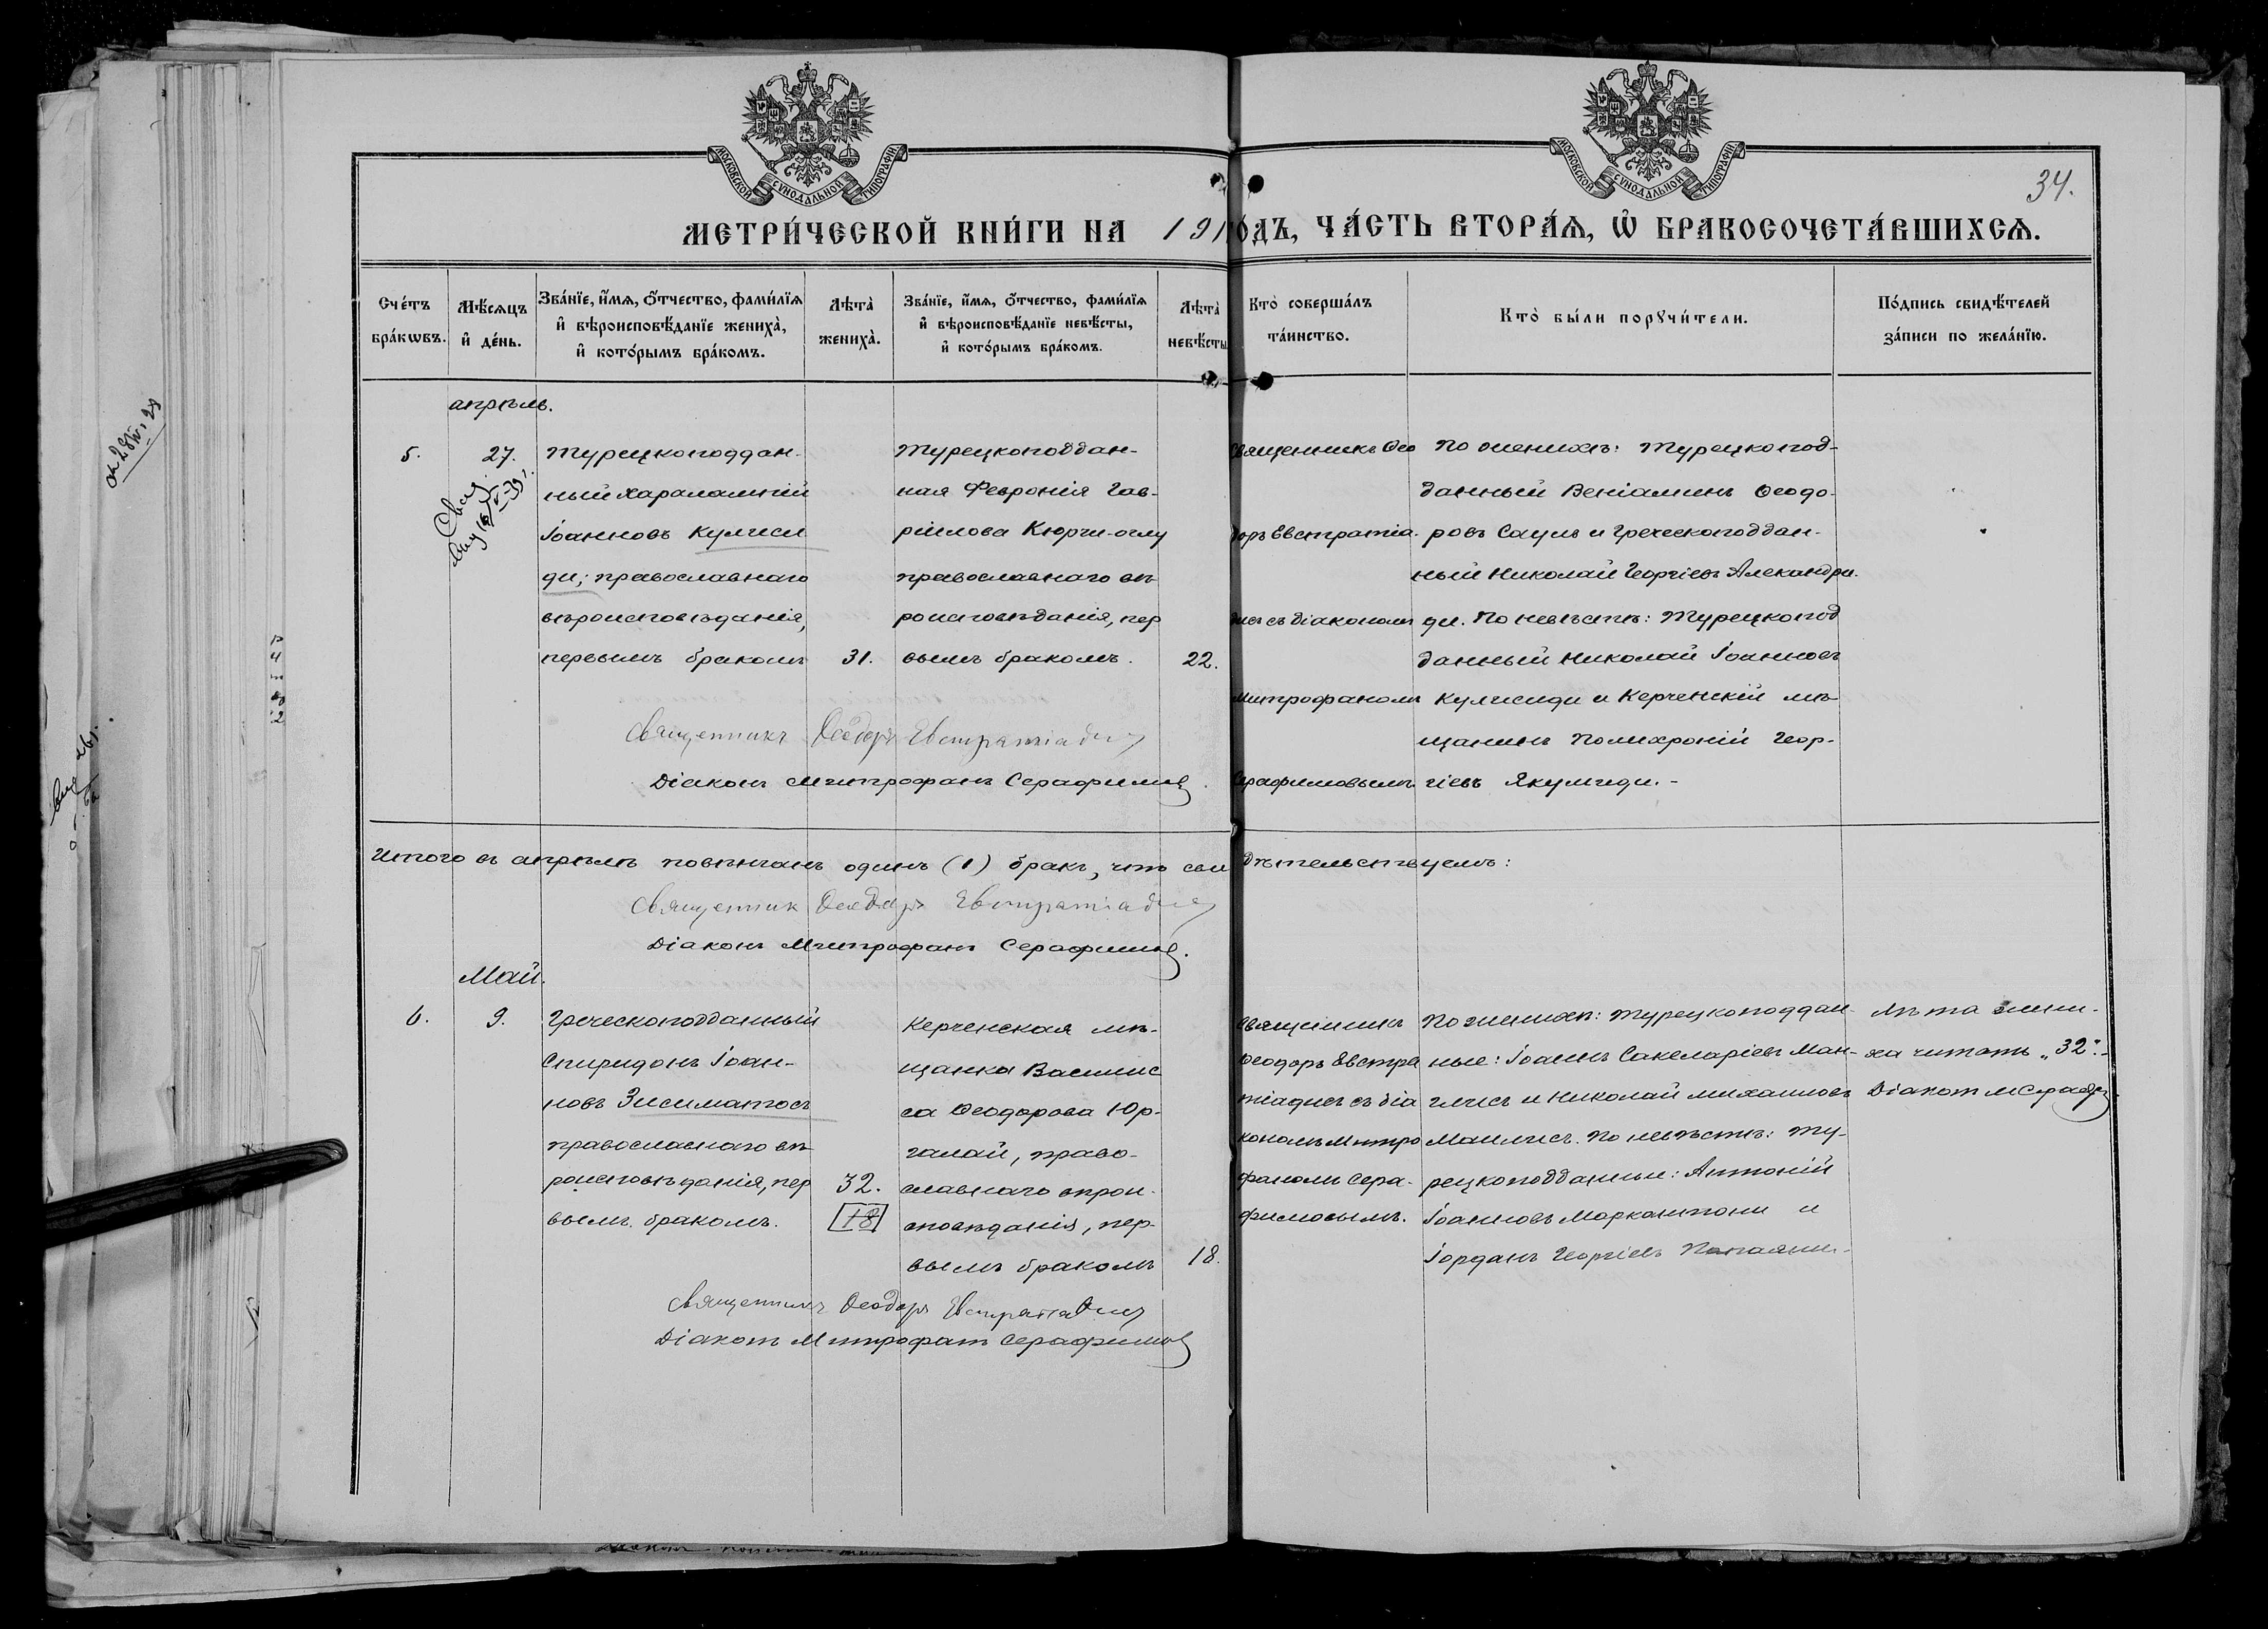 МОСКОВСКОЙ СѴНОДАЛЬНОЙ ТИПОГРАФІИ
МОСКОВСКОЙ СѴНОДАЛЬНОЙ ТИПОГРАФІИ
34.
МЕТРИ́ЧЕСКОЙ КНИ́ГИ НА 191 ОДЪ, ЧА́СТЬ ВТОРА́Ѧ, Ѡ БРАКОСОЧЕТА́ВШИХСѦ.
Сче́тъ бра́кѡвъ.
Мѣ́сѧцъ и҆ де́нь.
Зва́нїе, и҆́мѧ, ѻ҆́тчество, фами́лїѧ и҆ вѣроисповѣ́данїе жениха̀, и҆ кото́рымъ бра́комъ.
Лѣта̀ жениха̀.
Зва́нїе, и҆́мѧ, ѻ҆́тчество, фами́лїѧ и҆ вѣроисповѣ́данїе невѣ́сты, и҆ кото́рымъ бра́комъ.
Лѣта̀ невѣ́сты
Кто̀ соверша́лъ та́инство.
Кто̀ бы́ли порꙋчи́тели.
По́дпись свидѣ́телей за́писи по жела́нїю.
апрѣль.
5.
27.
Турецкоподдан-
ный Харалампій
Іоанновъ Кулчеи
ди; православнаго
вѣроисповѣданія,
первымъ бракомъ
31.
Турецкоподдан-
ная Февронія Гав-
ріилова Кюрчи-оглу
православнаго вѣ-
роисповѣданія, пер
вымъ бракомъ.
22.
Священникъ Ѳео
доръ Евстратіа-
дисъ съ діакономъ
Митрофаномъ
Серафимовымъ
По женихѣ: Турецкопод-
данный Веніаминъ Ѳеодо-
ровъ Сауль и Греческоподдан-
ный Николай Георгіевъ Александри-
ди. По невѣстѣ: Турецкопод
данный Николай Іоанновъ
Кулчеиди и Керченскій мѣ-
щанинъ Полихроній Геор-
гіевъ Якумиди.-
Священникъ Ѳеодоръ Евстратіадисъ
Діаконъ Митрофанъ Серафимовъ.
Итого въ апрѣлѣ повѣнчанъ одинъ (1) бракъ, что сви дѣтельствуемъ:
Священник Ѳеодоръ Евстратіадисъ
Діаконъ Митрофанъ Серафимовъ.
Май.
6.
9.
Греческоподданный
Спиридонъ Іоан-
новъ Зисиматосъ
православнаго вѣ
роисповѣданія, пер
вымъ бракомъ.
32.
18
Керченская мѣ-
щанка Васились
са Ѳеодорова Юр-
галай, право-
славнаго вѣрои-
сповѣданія, пер-
вымъ бракомъ
18.
Священникъ
Ѳеодоръ Евстра
тіадисъ съ діа
кономъ Митро
фаномъ Сера-
фимовымъ.
По женихѣ: Турецкоподдан-
ные: Іоаннъ Сакеларіевъ Ман-
гличъ и Николай Михаиловъ
Маилисъ. По невѣстѣ: Ту-
рецкоподданные: Антоній
Іоанновъ Маркантони и
Іорданъ Георгіевъ
Лѣта жени-
ха читать „32".-
Діаконъ М Сераф
Священникъ Ѳеодоръ Евстратіадисъ
Діаконъ Митрофанъ Серафимовъ